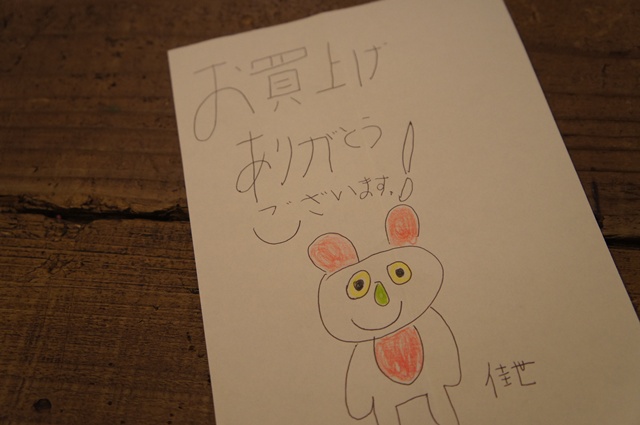 お買上げ
ありがとう
ございます!
佳世